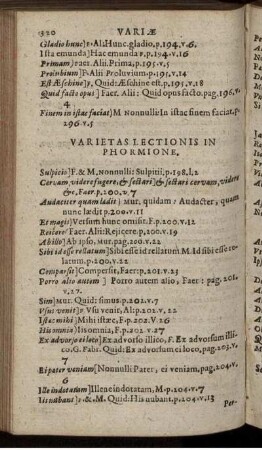 920 VARIÆ
Gladio hunc] F. Al. Hunc gladio, p. 194. v. 6.
Ista emunda] Hac emunda F, p. 194. v. 16
Primam] Faer. Alii. Prima, p. 195. v. 5
Proinbium] F. Alii Proluvium. p. 195. v. 14
Est Æschine] F. Quid: Æschine est, p. 195. v. 18
Quid facto opus] Faer. Alii: Quid opus facto. pag. 196. v.
4
Finem in istac faciat] M Nonnulli: In istac finem faciat. p.
296 v. 5
VARIETAS LECTIONIS IN
PHORMIONE.
Sulpicio] F. & M. nonnulli: Sulpitii, p. 198. l. 2
Cervam videre fugere, & sectari] & sectari cervam, videre
&c, Faer. p. 200. v. 7
Audacter quam ladit] mur, quidam: Audacter, quam
nunc lædit p. 200. v. 11
Et magis] Versum hunc omisit. F. p. 200. v. 12
Reilere] Faer. Alii: Rejicere. p. 200. v. 19
Abilio] Ab ipso, Mur. pag. 200. v. 22
Sibi id esse rellatum] Sibi esse id rellatum M. Id sibi esse re-
latum. p. 200. v. 22
Comparse] Compersit, Faer: p. 201. v. 23
Porro alto autem] Porto autem alio, Faer: pag. 201.
v. 27.
Sim] Mur. Quid: simus p. 202. v. 7
Vsus venit] F. Vsu venit, Al: p. 201. v. 22
Istac mihi] Mihi istæc, F. p. 202. v. 26
His omnio] Isomnia, F. p. 202. v. 27
Ex advorso eiloco] Ex advorso illico, F. Ex advorsum illi-
co. G. Fabr. Quid: Ex advorsum ei loco, pag. 203. v.
7
Ei pater veniam] Nonnulli Pater, ei veniam, pag. 204. v.
6
Ille indotatam] Illene indotatam, M. p. 204. v. 7
Iis nubant] F. & M. Quid: His nubant. p. 204. v. 13
Per-